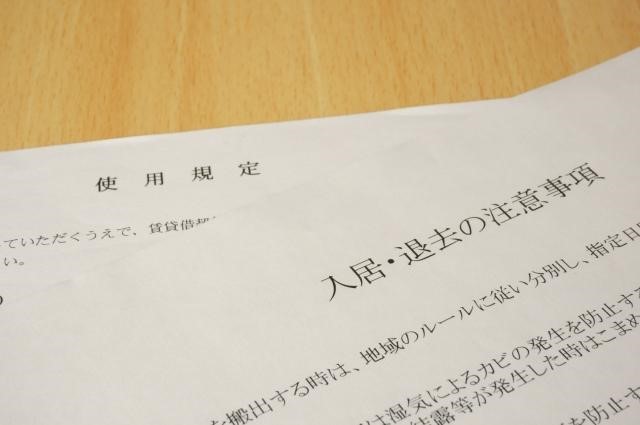 使用規定
ていただくうえで、賃貸借契
い。
入居・退去の注意事項
を搬出する時は、地域のルールに従い分別し、指定日
は湿気によるカビの発生を防止する
結露等が発生した時はこまめ
を防止す